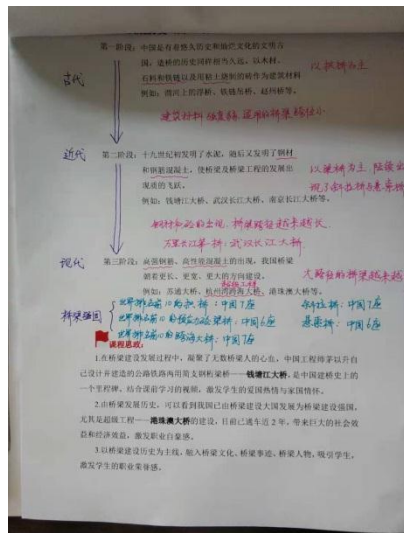 第一阶段：中国是有着悠久历史和灿烂文化的文明古
国，造桥的历史同样相当久远。以木材、
古代
石料和铁链以及用粘土烧制的砖作为建筑材料
以拱桥为主
例如：湘江上的浮桥、铁链吊桥、赵州桥等。
建筑材料强度弱，适用的桥梁跨径小
近代
第二阶段：十九世纪初发明了水泥，随后又发明了钢材
和钢筋混凝土，使桥梁及桥梁工程的发展出
以梁桥为主，陆续出
现质的飞跃。
现了斜拉桥与悬索桥
例如：钱塘江大桥、武汉长江大桥、南京长江大桥等。
钢材和砼的出现，桥梁跨径越来越长
万里长江第一桥：武汉长江大桥
现代
第三阶段：高强钢筋、高性能混凝土的出现，我国桥梁
朝着更长、更宽、更大的方向建设。
大跨径的桥梁越来越
超级工程
例如：苏通大桥、杭州湾跨海大桥、港珠澳大桥等。
桥梁强国
世界排名前10的拱桥：中国7座
斜拉桥：中国7座
世界排名前10的预应力砼梁桥：中国6座
悬索桥：中国6座
世界排名前10的跨海大桥：中国7座
课程思政：
1.在桥梁建设发展过程中，凝聚了无数桥梁人的心血，中国工程师茅以升自
己设计并建造的公路铁路两用简支钢桁梁桥——钱塘江大桥，是中国建桥史上的
一个里程碑，结合课前学习的视频，激发学生的爱国热情与家国情怀。
2.由桥梁发展历史，可以看到我国已由桥梁建设大国发展为桥梁建设强国，
尤其是超级工程——港珠澳大桥的建设，目前已通车近2年，带来巨大的社会效
益和经济效益，激发职业自豪感。
3.以桥梁建设历史为主线，融入桥梁文化、桥梁事迹、桥梁人物，吸引学生，
激发学生的职业荣誉感。